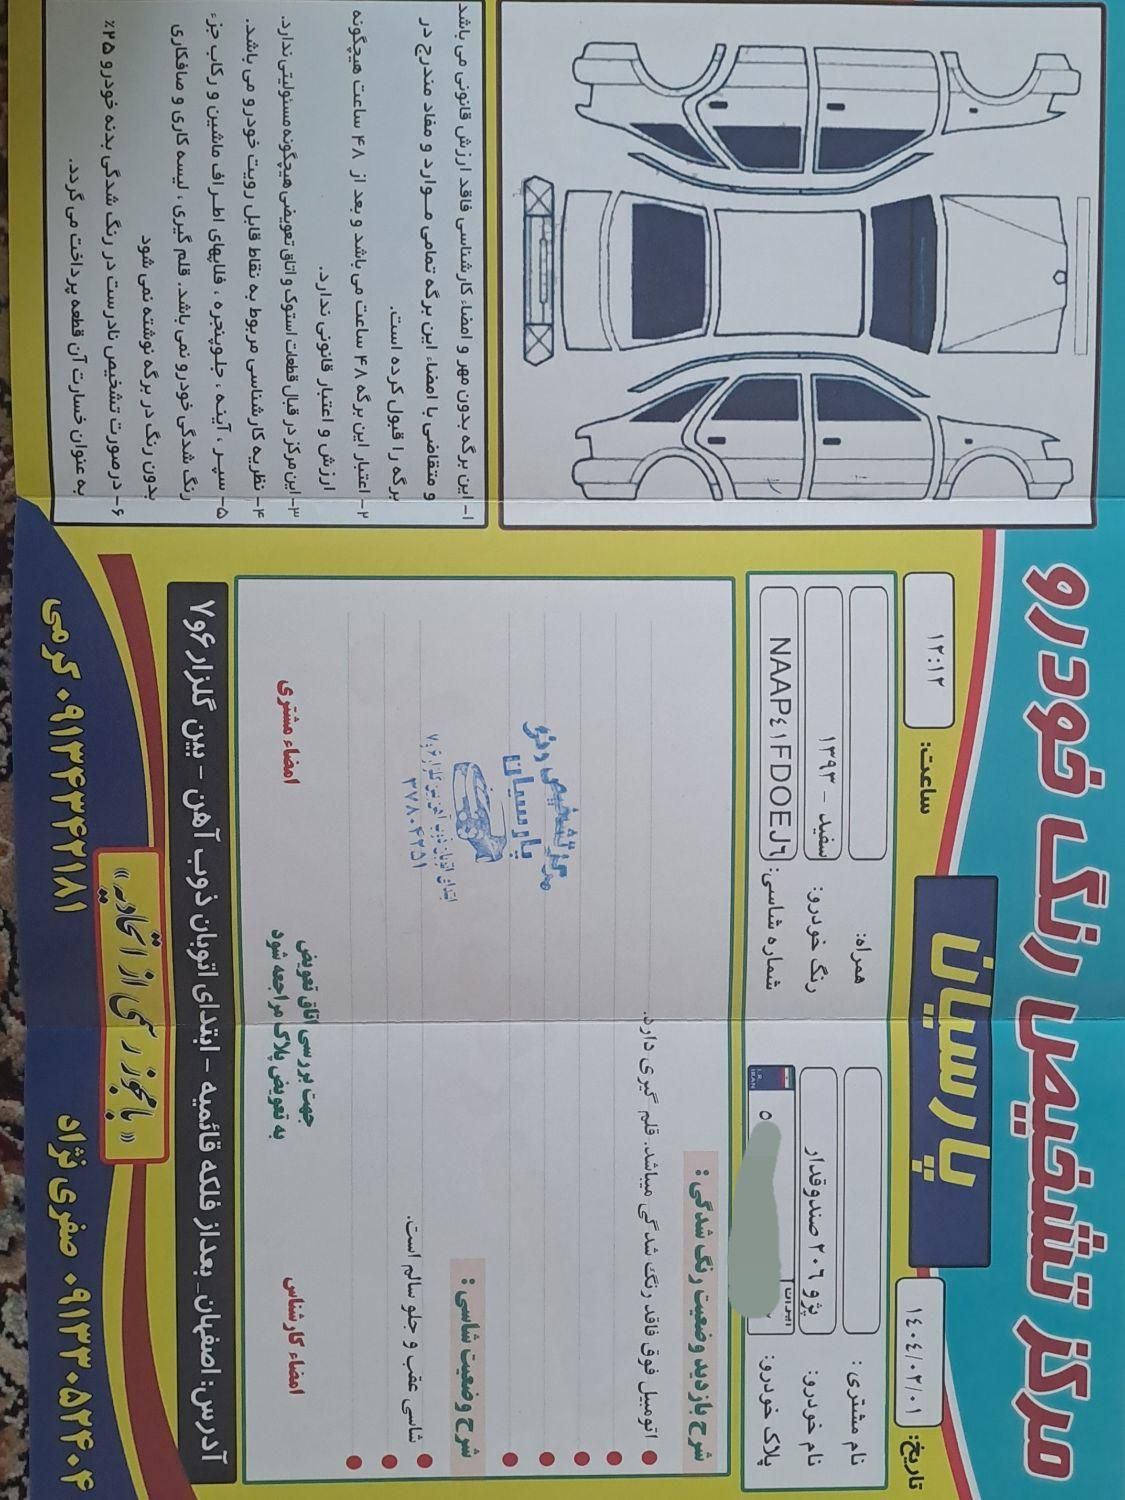 مرکز تشخیص رنگ خودرو
پارسیان
تاریخ: ۱۴۰۴/۰۲/۰۱
ساعت: ۱۲:۱۲
نام مشتری:
همراه:
نام خودرو: پژو ۲۰۶ صندوقدار
رنگ خودرو: سفید - ۱۳۹۳
پلاک خودرو: ایران ۵
I.R.
IRAN
شماره شاسی: NAAP٤١FDOEJ٦
شرح بازدید وضعیت رنگ شدگی:
اتومبیل فوق فاقد رنگ شدگی میباشد. قلم گیری دارد.
شرح وضعیت شاسی:
شاسی عقب و جلو سالم است.
مرکز تشخیص رنگ خودرو
پارسیان
۳۷۸۰۴۲۵۱
امضاء کارشناس
جهت بررسی اتاق تعویض
به تعویض پلاک مراجعه شود
امضاء مشتری
آدرس: اصفهان_ بعداز فلکه قائمیه - ابتدای اتوبان ذوب آهن - بین گلزار۶و۷
«با مجوز رسمی از اتحادیه»
۰۹۱۳۳۰۵۲۴۰۴ صفری نژاد
۰۹۱۳۴۳۴۲۱۸۱ کرمی
۱- این برگه بدون مهر و امضاء کارشناسی فاقد ارزش قانونی می باشد
و متقاضی با امضاء این برگه تمامی موارد و مفاد مندرج در
برگه را قبول کرده است.
۲- اعتبار این برگه ۴۸ ساعت می باشد و بعد از ۴۸ ساعت هیچگونه
ارزش و اعتبار قانونی ندارد.
۳- این مرکز در قبال قطعات استوک و اتاق تعویضی هیچگونه مسئولیتی ندارد.
۴- نظریه کارشناسی مربوط به نقاط قابل رویت خودرو می باشد.
۵- سپر ، آینه ، جلوپنجره ، فلاپهای اطراف ماشین و رکاب جزء
رنگ شدگی خودرو نمی باشد. قلم گیری ، لیسه کاری و صافکاری
بدون رنگ در برگه نوشته نمی شود
۶- درصورت تشخیص نادرست در رنگ شدگی بدنه خودرو ۲۵٪
به عنوان خسارت آن قطعه پرداخت می گردد.